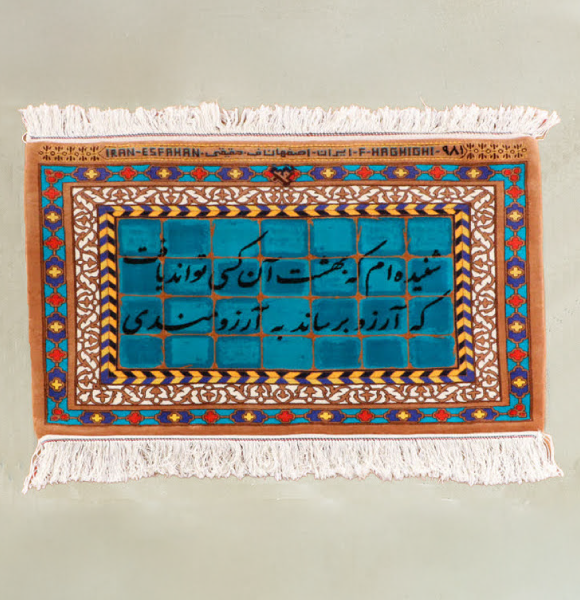 IRAN-ESFAHAN-ایران-اصفهان ف-حقیقی-F-HAGHIGHI-۹۸۱
شنیده‌ام که بهشت آن کسی تواند یافت
که آرزو برساند به آرزومندی